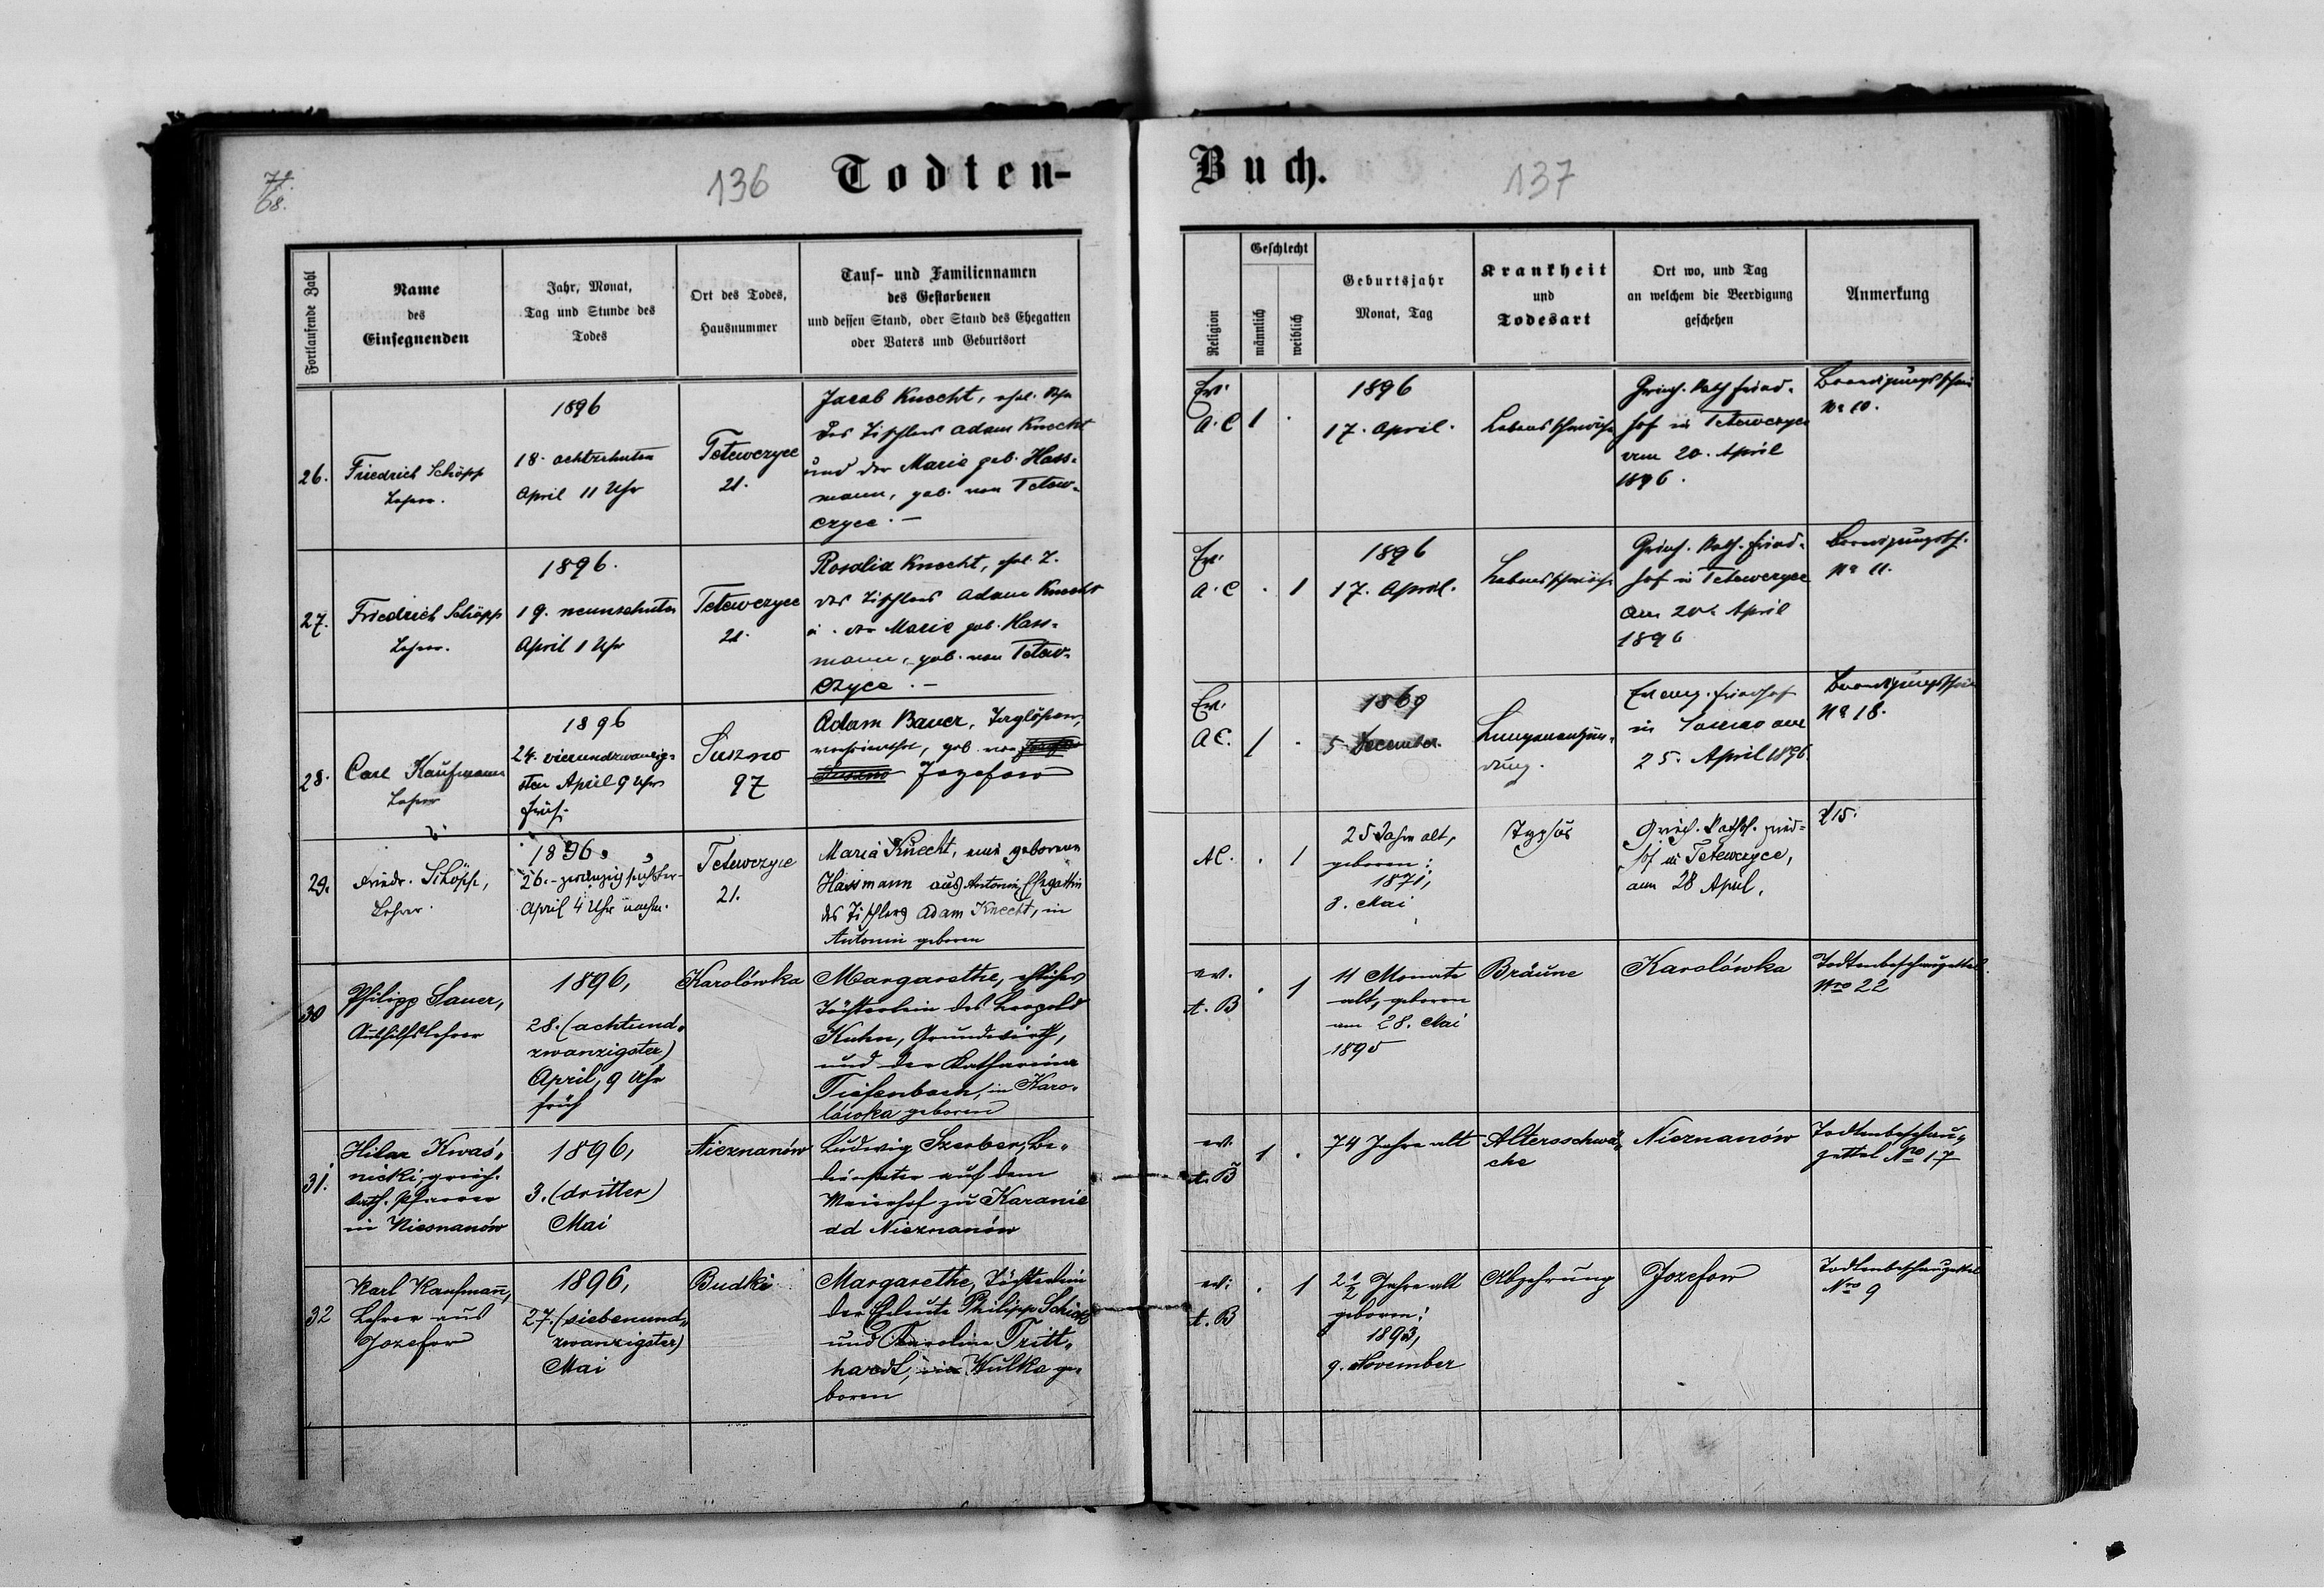 71.
68.
136
Todten-
Buch.
137
Fortlaufende Zahl
Name
des
Einsegnenden
Jahr, Monat,
Tag und Stunde des
Todes
Ort des Todes,
Hausnummer
Tauf- und Familiennamen
des Gestorbenen
und dessen Stand, oder Stand des Ehegatten
oder Vaters und Geburtsort
Religion
Geschlecht
männlich
weiblich
Geburtsjahr
Monat, Tag
Krankheit
und
Todesart
Ort wo, und Tag
an welchem die Beerdigung
geschehen
Anmerkung
26.
Friedrich Schöpp
Lehrer.
1896
18. achtzehnten
April 11 Uhr
Tetewczyce
21.
Jacob Knecht, ehel. Sohn
des Tischlers Adam Knecht
und der Marie geb. Hass-
mann, geb. von Tetew-
czyce.-
Ev.
A.C
1
.
1896
17. April.
Lebensschwäche
Griech. Kath Fried-
hof in Tetewczyce
am 20. April
1896.
Beerdigungsschein
No 10.
27.
Friedrich Schöpp
Lehrer.
1896.
19. neunzehnten
April 1 Uhr
Tetewczyce
21.
Rosalia Knecht, ehel. T.
des Tischlers Adam Knecht
u. der Marie geb. Hass-
mann, geb. von Tetew-
czyce.-
Ev.
A.C
.
1
1896
17. April.
Lebensschwäche
Griech. Kath. Fried-
hof in Tetewczyce
am 20. April
1896
Beerdigungssch.
No 11.
28.
Carl Kaufmann
Lehrer
1896
24. vierundzwanzig-
sten April 9 Uhr
früh.
Suszno
97
Adam Bauer, Taglöhner,
verheirathet, geb. von
Suszno Jozefow
Ev.
AC.
1
.
1869
5 December.
Lungenentzün-
dung.
Evang. Friedhof
in am
25. April 1896
Beerdigungsschein
No 18.
29.
Friedr. Schöpp,
Lehrer.
1896.
26.- zwanzig sechster
April 4 Uhr nachm.
Tetewczyce
21.
Maria Knecht, eine geborene
Hassmann aus Antonin, Ehegattin
des Tischlers Adam Knecht, in
Antonin geboren
AC.
.
1
25 Jahre alt,
geboren:
1871,
3. Mai
Typhus
Griech. Kathol. Fried-
hof in Tetewczyce,
am 28 April.
15.
30
Philipp Sauer,
Aushilfslehrer
1896,
28. (achtund-
zwanzigster)
April, 9 Uhr
früh
Karolówka
Margarethe, eheliches
Töchterlein des Leopold
Kuhn, Grundwirth,
und der Katharina
Tiefenbach, in Karo-
lówka geboren
ev.
A.B
.
1
11 Monate
alt, geboren
am 28. Mai
1895
Bräune
Karolówka
Todtenbeschauzettel
Nro 22
31.
Hilar Kwaś-
nicki, griech.
kath. Pfarrer
in Niesnanów
1896,
3. (dritter)
Mai
Nieznanów
Ludwig Szerber, Be-
diensteter auf dem
Meierhof zu Karanie
ad Nieznanów
ev.
A.B
1
.
74 Jahre alt
Altersschwä-
che
Nieznanów
Todtenbeschau-
zettel No 17
32
Karl Kaufmañ,
Lehrer aus
Jozefow
1896,
27. (siebenund-
zwanzigster)
Mai
Budki
Margarethe, Töchterlein
der Eheleute Philipp Schick
und Karoline Tritt-
hardt, in Wulka ge-
boren
ev.
A.B
.
1
2 1/2 Jahre alt
geboren:
1893,
9. November
Abzehrung
Jozefow
Todtenbeschauzettel
Nro 9